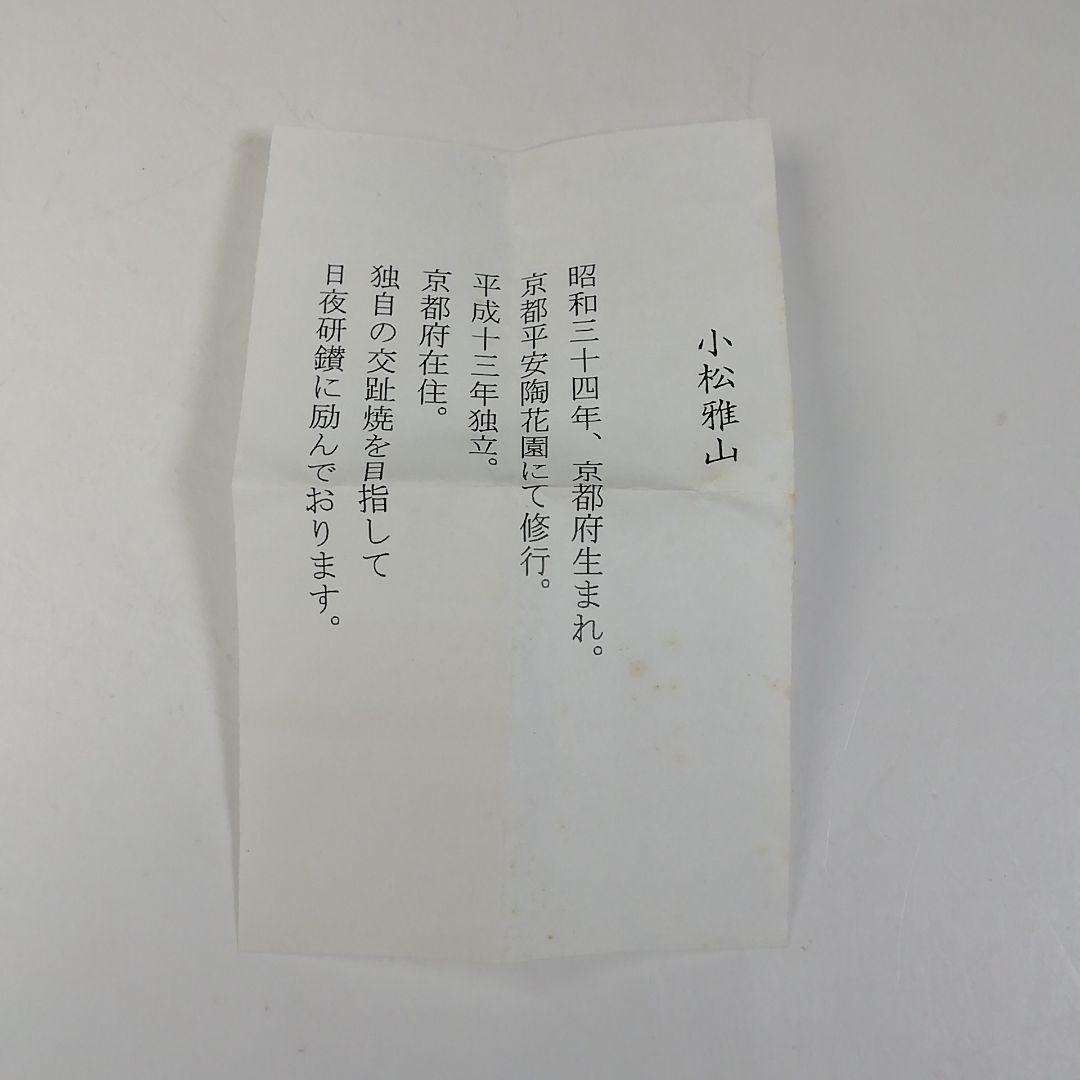 小松雅山
昭和三十四年、京都府生まれ。
京都平安陶花園にて修行。
平成十三年独立。
京都府在住。
独自の交趾焼を目指して
日夜研鑚に励んでおります。